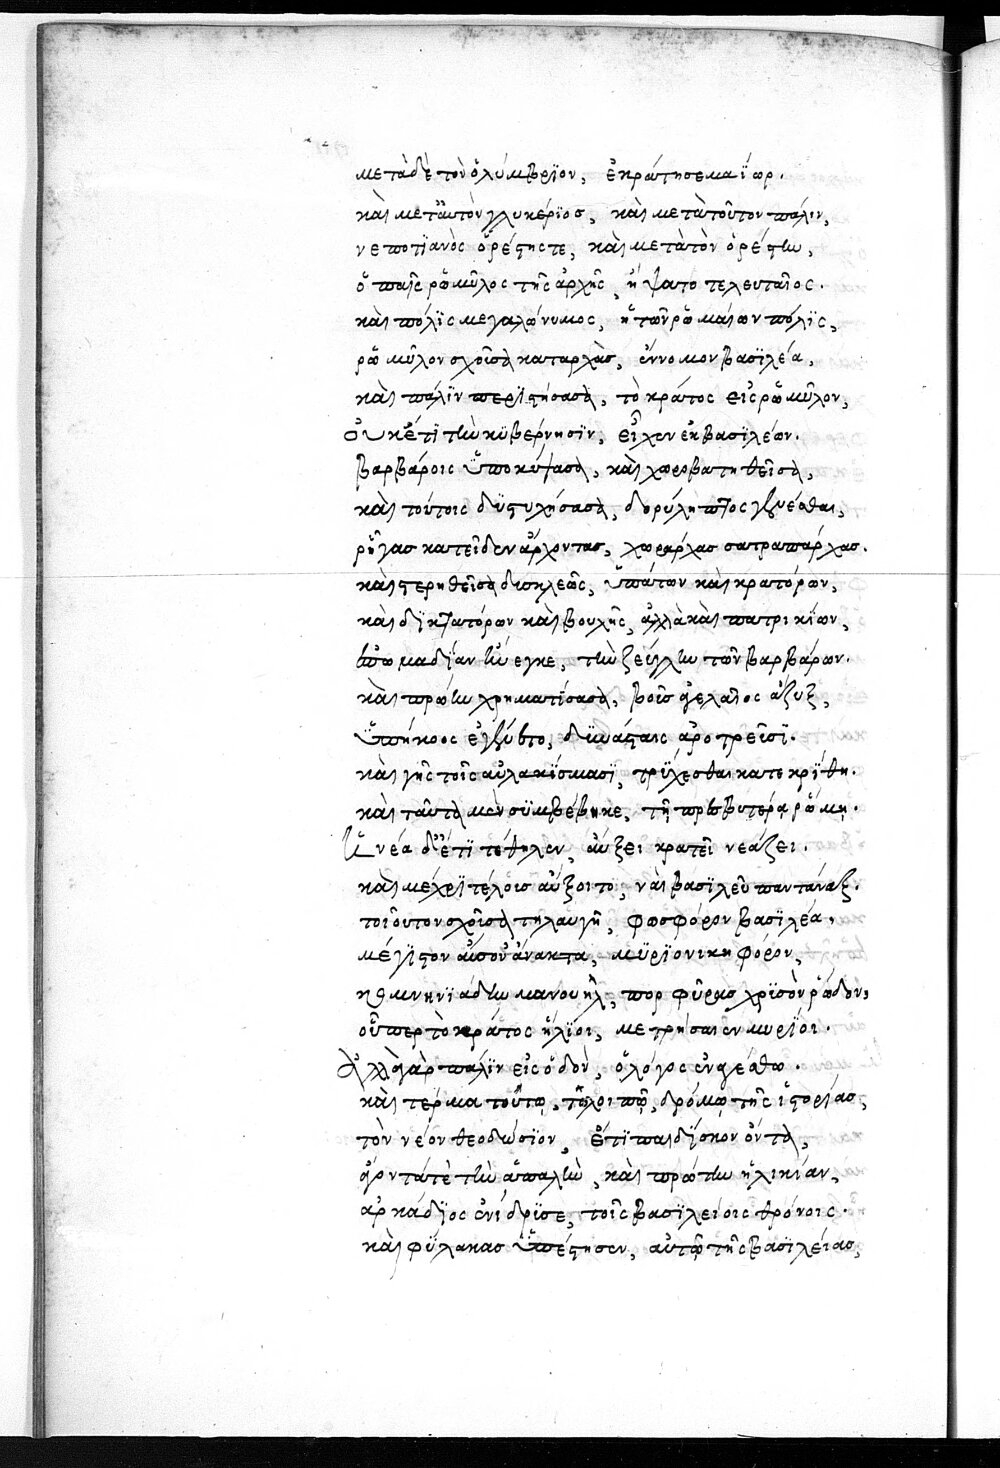 μετὰ δὲ τὸν ὀλύμβριον, ἐκράτησε μαΐωρ.
καὶ μετ' αὐτὸν γλυκέριος, καὶ μετὰ τοῦτον πάλιν,
νεποτϊανὸς ὀρέστης τε, καὶ μετὰ τὸν ὀρέστην,
ὁ παῖς ῥωμῦλος τῆς ἀρχῆς, ἥψατο τελευταῖος.
καὶ πόλϊς μεγαλώνυμος, ἡ τῶν ῥωμαίων πόλϊς,
ῥωμῦλον σχοῦσα καταρχὰς, ἔννομον βασϊλέα,
καὶ πάλϊν περϊστήσασα, τὸ κράτος εἰς ῥωμῦλον,
οὐκέτϊ τὴν κϋβέρνησϊν, εἶχεν ἐκ βασϊλέων.
βαρβάροις ὑποκύψασα, καὶ χωροβατηθεῖσα,
καὶ τούτοις δϋστυχήσασα, δορύληπτος γενέσθαι,
ῥῆγας κατεῖδεν ἄρχοντας, χωράρχας σατραπάρχας.
καὶ στερηθεῖσα δυσκλεῶς, ὑπάτων καὶ κρατόρων,
καὶ δϊκτατόρων καὶ βουλῆς, ἀλλὰ καὶ πατρικίων,
ὑπωμαδϊαν ἤνεγκε, τὴν ζεύγλην τῶν βαρβάρων.
καὶ πρώην χρηματίσασα, βοῦς ἀγελαῖος ἄζυξ,
ὑπήκοος ἐγένετο, δϋνάσταις ἀροτρεῦσϊ.
καὶ γῆς τοῖς αὐλακϊσμασϊ, τρϋχεσθαι κατεκρϊθη.
καὶ ταῦτα μὲν σϋμβέβηκε, τῇ πρεσβυτέρᾳ ῥώμῃ.
ἡ νέα δ' ἔτϊ τέθηλεν, αὔξει κρατεῖ νεάζει.
καὶ μέχρϊ τέλους αὔξοιτο, ναὶ βασϊλεῦ παντάναξ.
τοιοῦτον σχοῦσα τηλαυγῆ, φωσφόρον βασϊλέα,
μέγϊστον αὐσονάνακτα, μϋρϊονικηφόρον,
κομνηνϊάδην μανουὴλ, πορφύρας χρϊσὸν ῥόδον,
οὗπερ τὸ κράτος ἥλϊοι, μετρήσαιεν μυρϊοι.
ἀλλὰ γὰρ πάλϊν εἰς ὁδὸν, ὁ λόγος ἐναγέσθω.
καὶ τέρμα τούτω, τῶ λοιπῶ, δρόμω τῆς ἱστορϊας,
τὸν νέον θεοδώσϊον, ἔτϊ παιδϊσκον ὄντα,
ἄγοντά τε τὴν ἁπαλὴν, καὶ πρώτην ἡλικίαν,
ἀρκάδϊος ἐνίδρϋσε, τοῖς βασϊλείοις θρόνοις.
καὶ φύλακας ὑπέστησεν, αὐτῶ τῆς βασϊλείας,